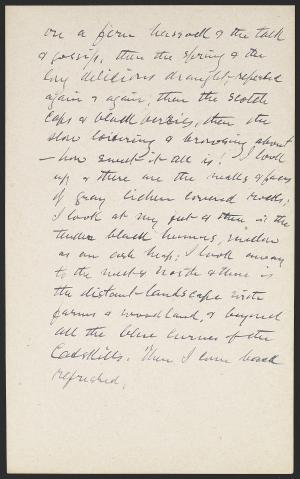 on a fern hassock & the talk
& gossip, then the spring & the
long delicious draught - repeated
again & again, then the
caps & black berries, then the
slow loitering & browsing about
- how sweet it all is! I look
up & there are the walls & faces
of gray lichen covered rocks;
I look at my feet & then is the
tender black humus, mellow
as an ash heap; I look away
to the west & north & there is
the distant landscape with
farms & woodland, & beyond
all the blue curves of the
Catskills. Then I come back
refreshed.